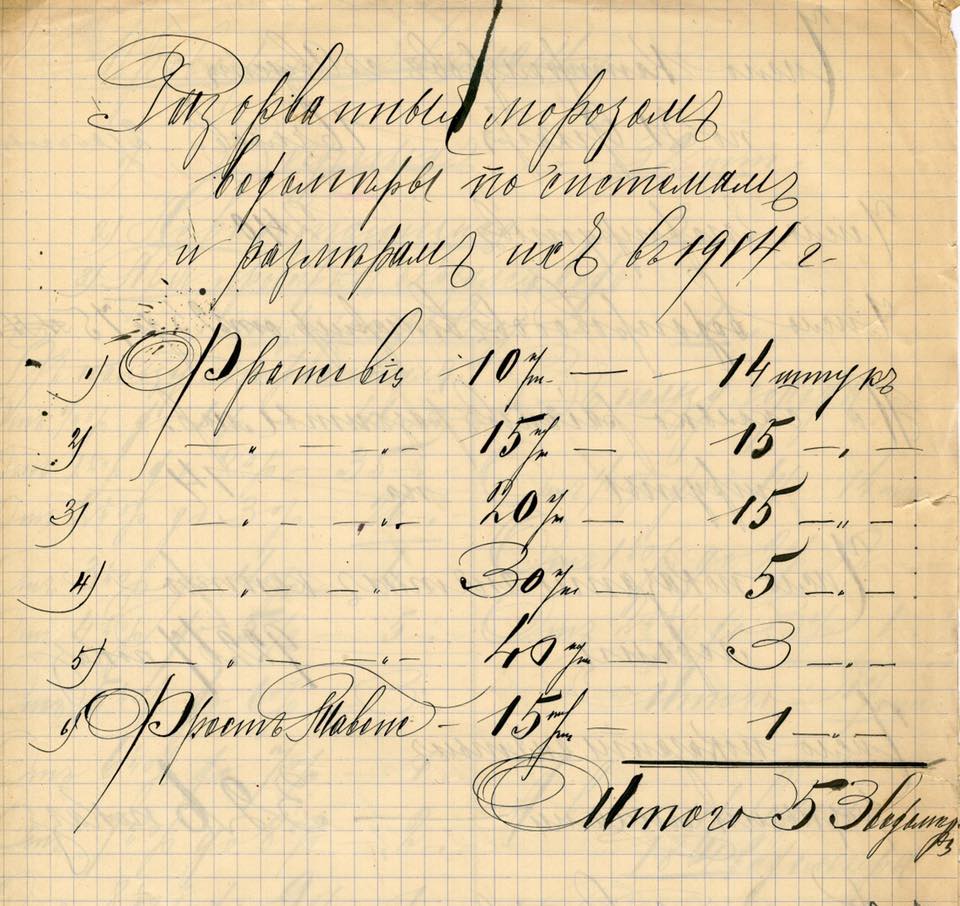 Разорванныя морозомъ
водомѣры по системамъ
и размѣрамъ ихъ въ 1914 г.
1) 10 m/m — 14 штукъ
2) — „ — „ — 15 m/m — 15 — „ —
3) — „ — — „ — 20 m/m — 15 — „ —
4) — „ — — „ — 30 m/m — 5 — „ —
5) — „ — — „ — 40 m/m — 3 — „ —
6) Фростъ — 15 m/m — 1 — „ —
Итого 53 водомѣ-
ръ